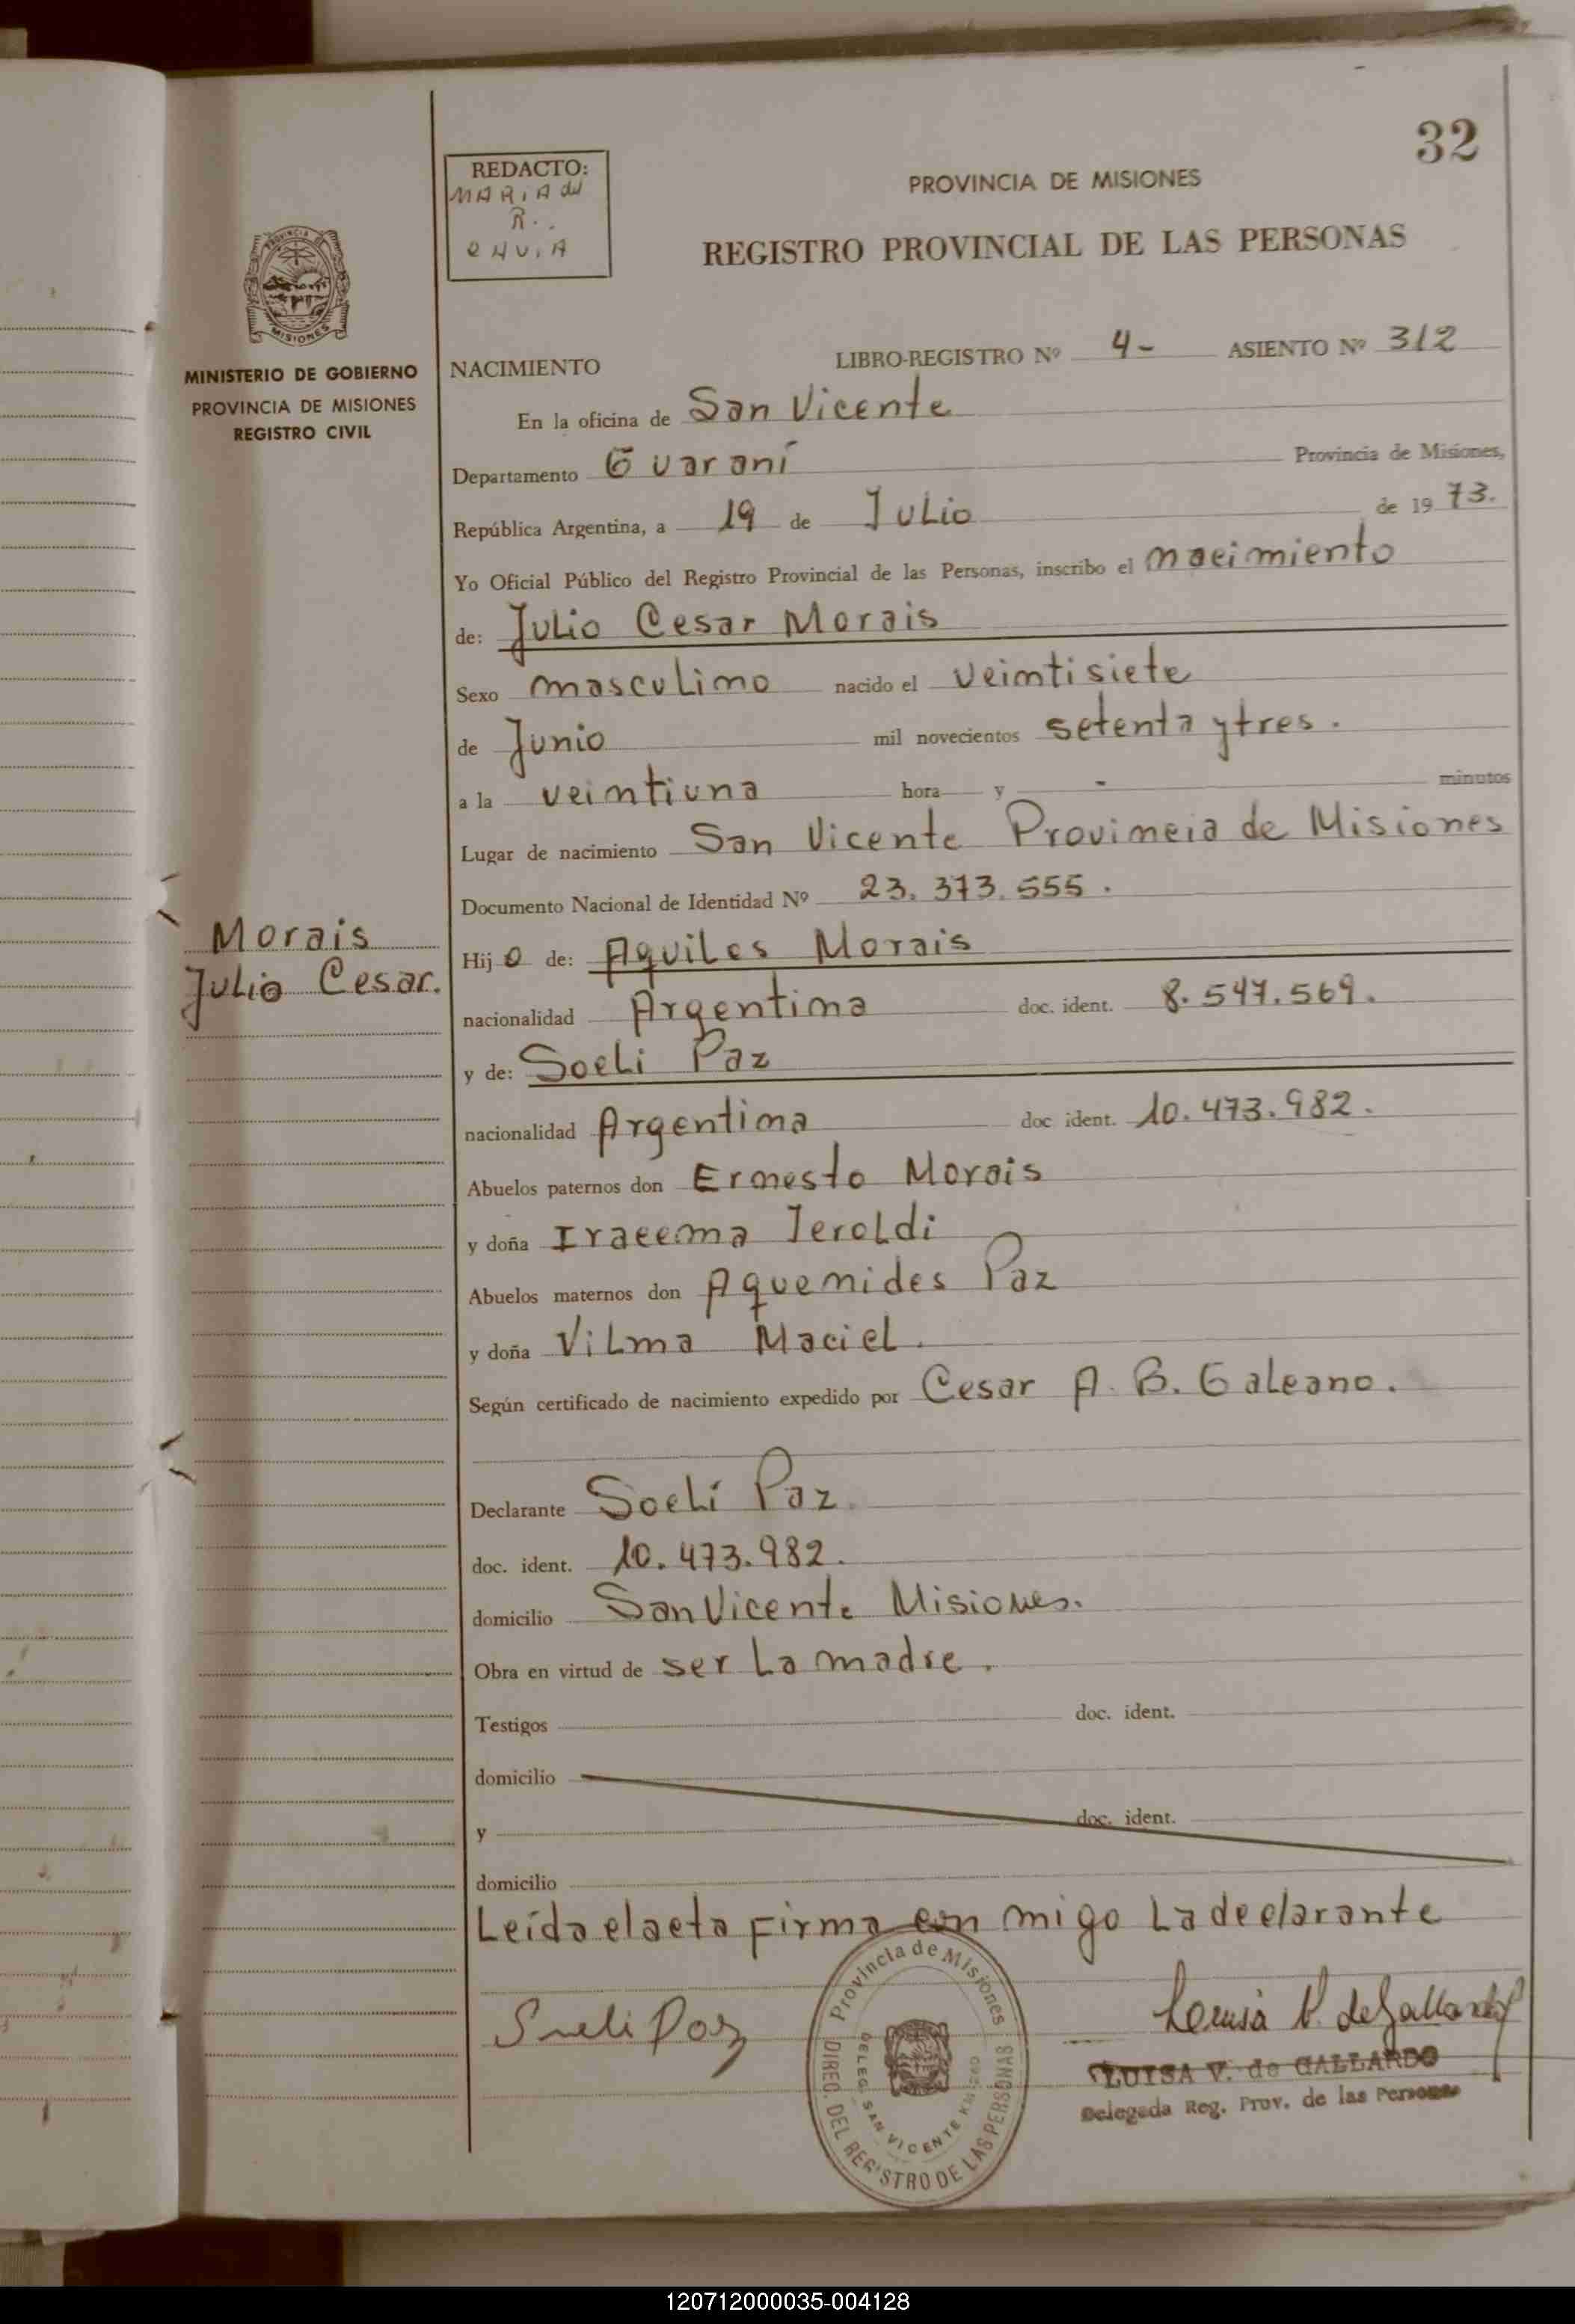 32
REDACTO:
MARIA del
R.
PROVINCIA DE MISIONES
REGISTRO PROVINCIAL DE LAS PERSONAS
PROVINCIA DE
MISIONES
MINISTERIO DE GOBIERNO
PROVINCIA DE MISIONES
REGISTRO CIVIL
NACIMIENTO LIBRO-REGISTRO Nº 4- ASIENTO Nº 312
En la oficina de San Vicente
Departamento Guaraní Provincia de Misiones,
República Argentina, a 19 de Julio de 1973.
Yo Oficial Público del Registro Provincial de las Personas, inscribo el nacimiento
de: Julio Cesar Morais
Sexo masculino nacido el veintisiete
de Junio mil novecientos setenta y tres.
a la veintiuna hora y - minutos
Lugar de nacimiento San Vicente Provincia de Misiones
Documento Nacional de Identidad Nº 23.373.555.
Morais
Julio Cesar.
Hijo de: Aquiles Morais
nacionalidad Argentina doc. ident. 8.547.569.
y de: Soeli Paz
nacionalidad Argentina doc ident. 10.473.982.
Abuelos paternos don Ernesto Morais
y doña Iracema Jeroldi
Abuelos maternos don Aquemides Paz
y doña Vilma Maciel.
Según certificado de nacimiento expedido por Cesar A. B. Galeano.
Declarante Soelí Paz.
doc. ident. 10.473.982.
domicilio San Vicente Misiones.
Obra en virtud de ser La madre.
Testigos doc. ident.
domicilio
y doc. ident.
domicilio
Leída el acta Firma con migo La declarante
Sueli Paz
Provincia de Misiones
DIREC. DEL REGISTRO DE LAS PERSONAS
DELEG. SAN VICENTE
Louisa V. de Gallardo
LUISA V. de GALLARDO
Delegada Reg. Prov. de las Personas
120712000035-004128